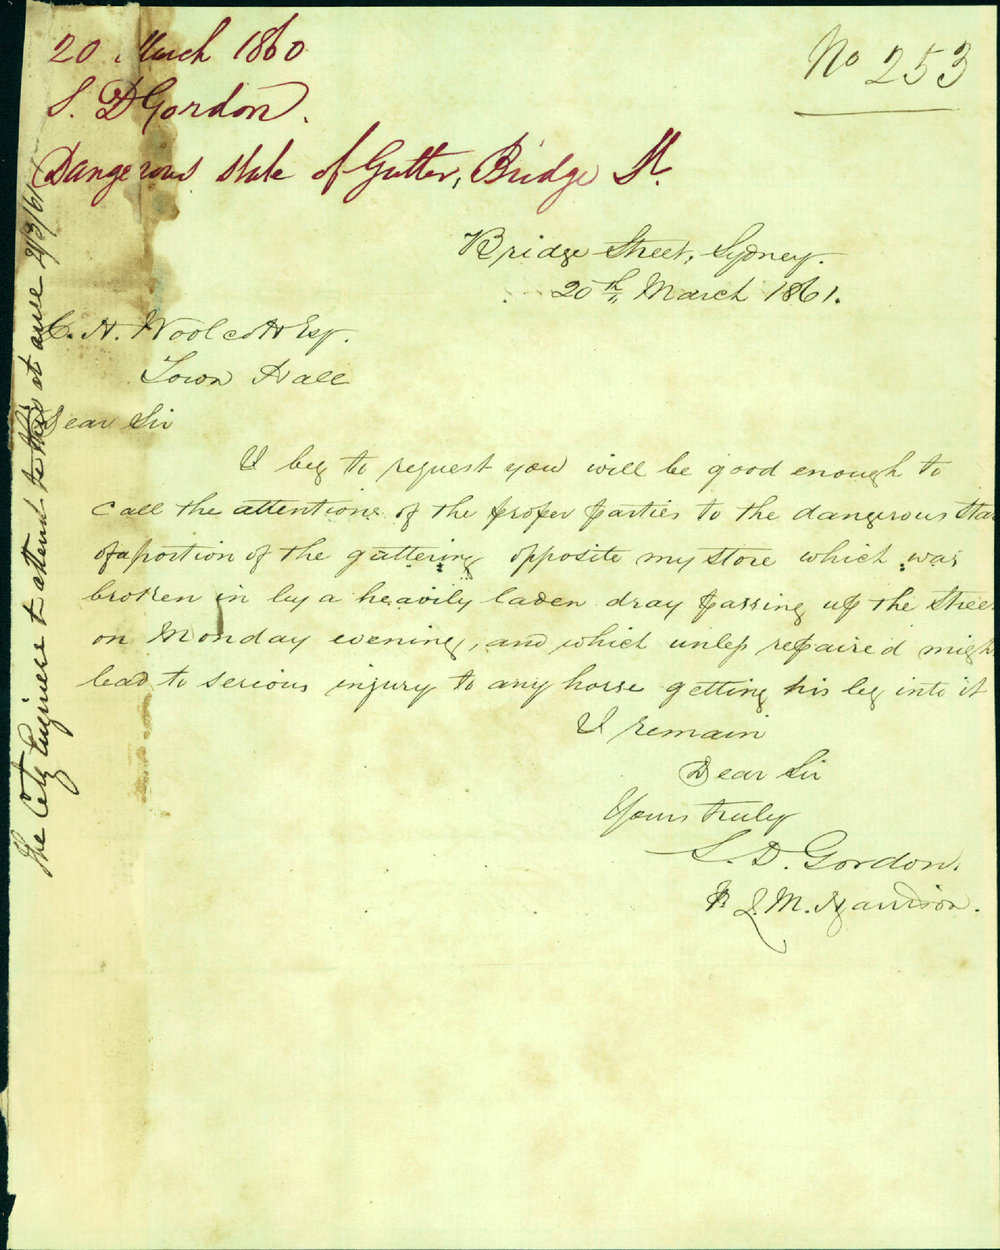 20 March 1860
S. D Gordon.
Dangerous state of Gutter, Bridge St.
No 253
Bridge Street, Sydney.
20th March 1861.
C. H. Woolcott Esq.
Town Hall
Dear Sir
I beg to request you will be good enough to
call the attention of the proper parties to the dangerous stat
of a portion of the guttering opposite my store which was
broken in by a heavily laden dray passing up the Stree
on Monday evening, and which unless repaired migh
lead to serious injury to any horse getting his leg into it
I remain
Dear Sir
Yours truly
S. D. Gordon.
J. M. Harrison.
The City Engineer to attend to this at once